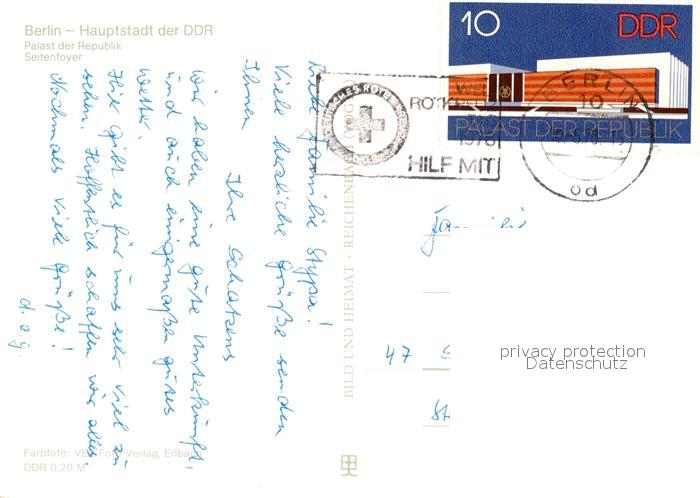 Berlin – Hauptstadt der DDR
Palast der Republik
Seitenfoyer
Familie Stypa!
Viele herzliche Grüße senden
Ihnen
Ihre
Wir haben eine gute Unterkunft
und auch einigermaßen gutes
Wetter.
Hier gibt es für uns sehr viel zu
sehen. Hoffentlich schaffen wir alles.
Nochmals viele Grüße!
d. o. g.
Farbfoto: Verlag, Erlbach
DDR 0,20 M
BILD UND HEIMAT · REICHENBA
10 DDR
PALAST DER REPUBLIK
HILF MIT
BERLIN
10
od
Familie
47
privacy protection
Datenschutz